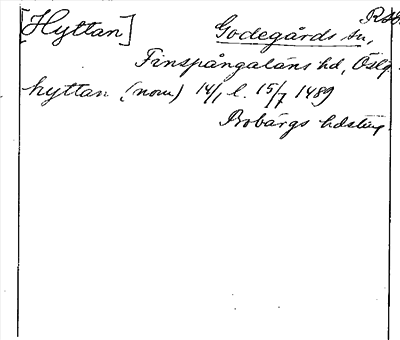 [Hyttan] Godegårds sn,
Finspångaläns hd, Östg.
hyttan (nom) 14/1 l. 15/7 1489
Bobärgs hdsting